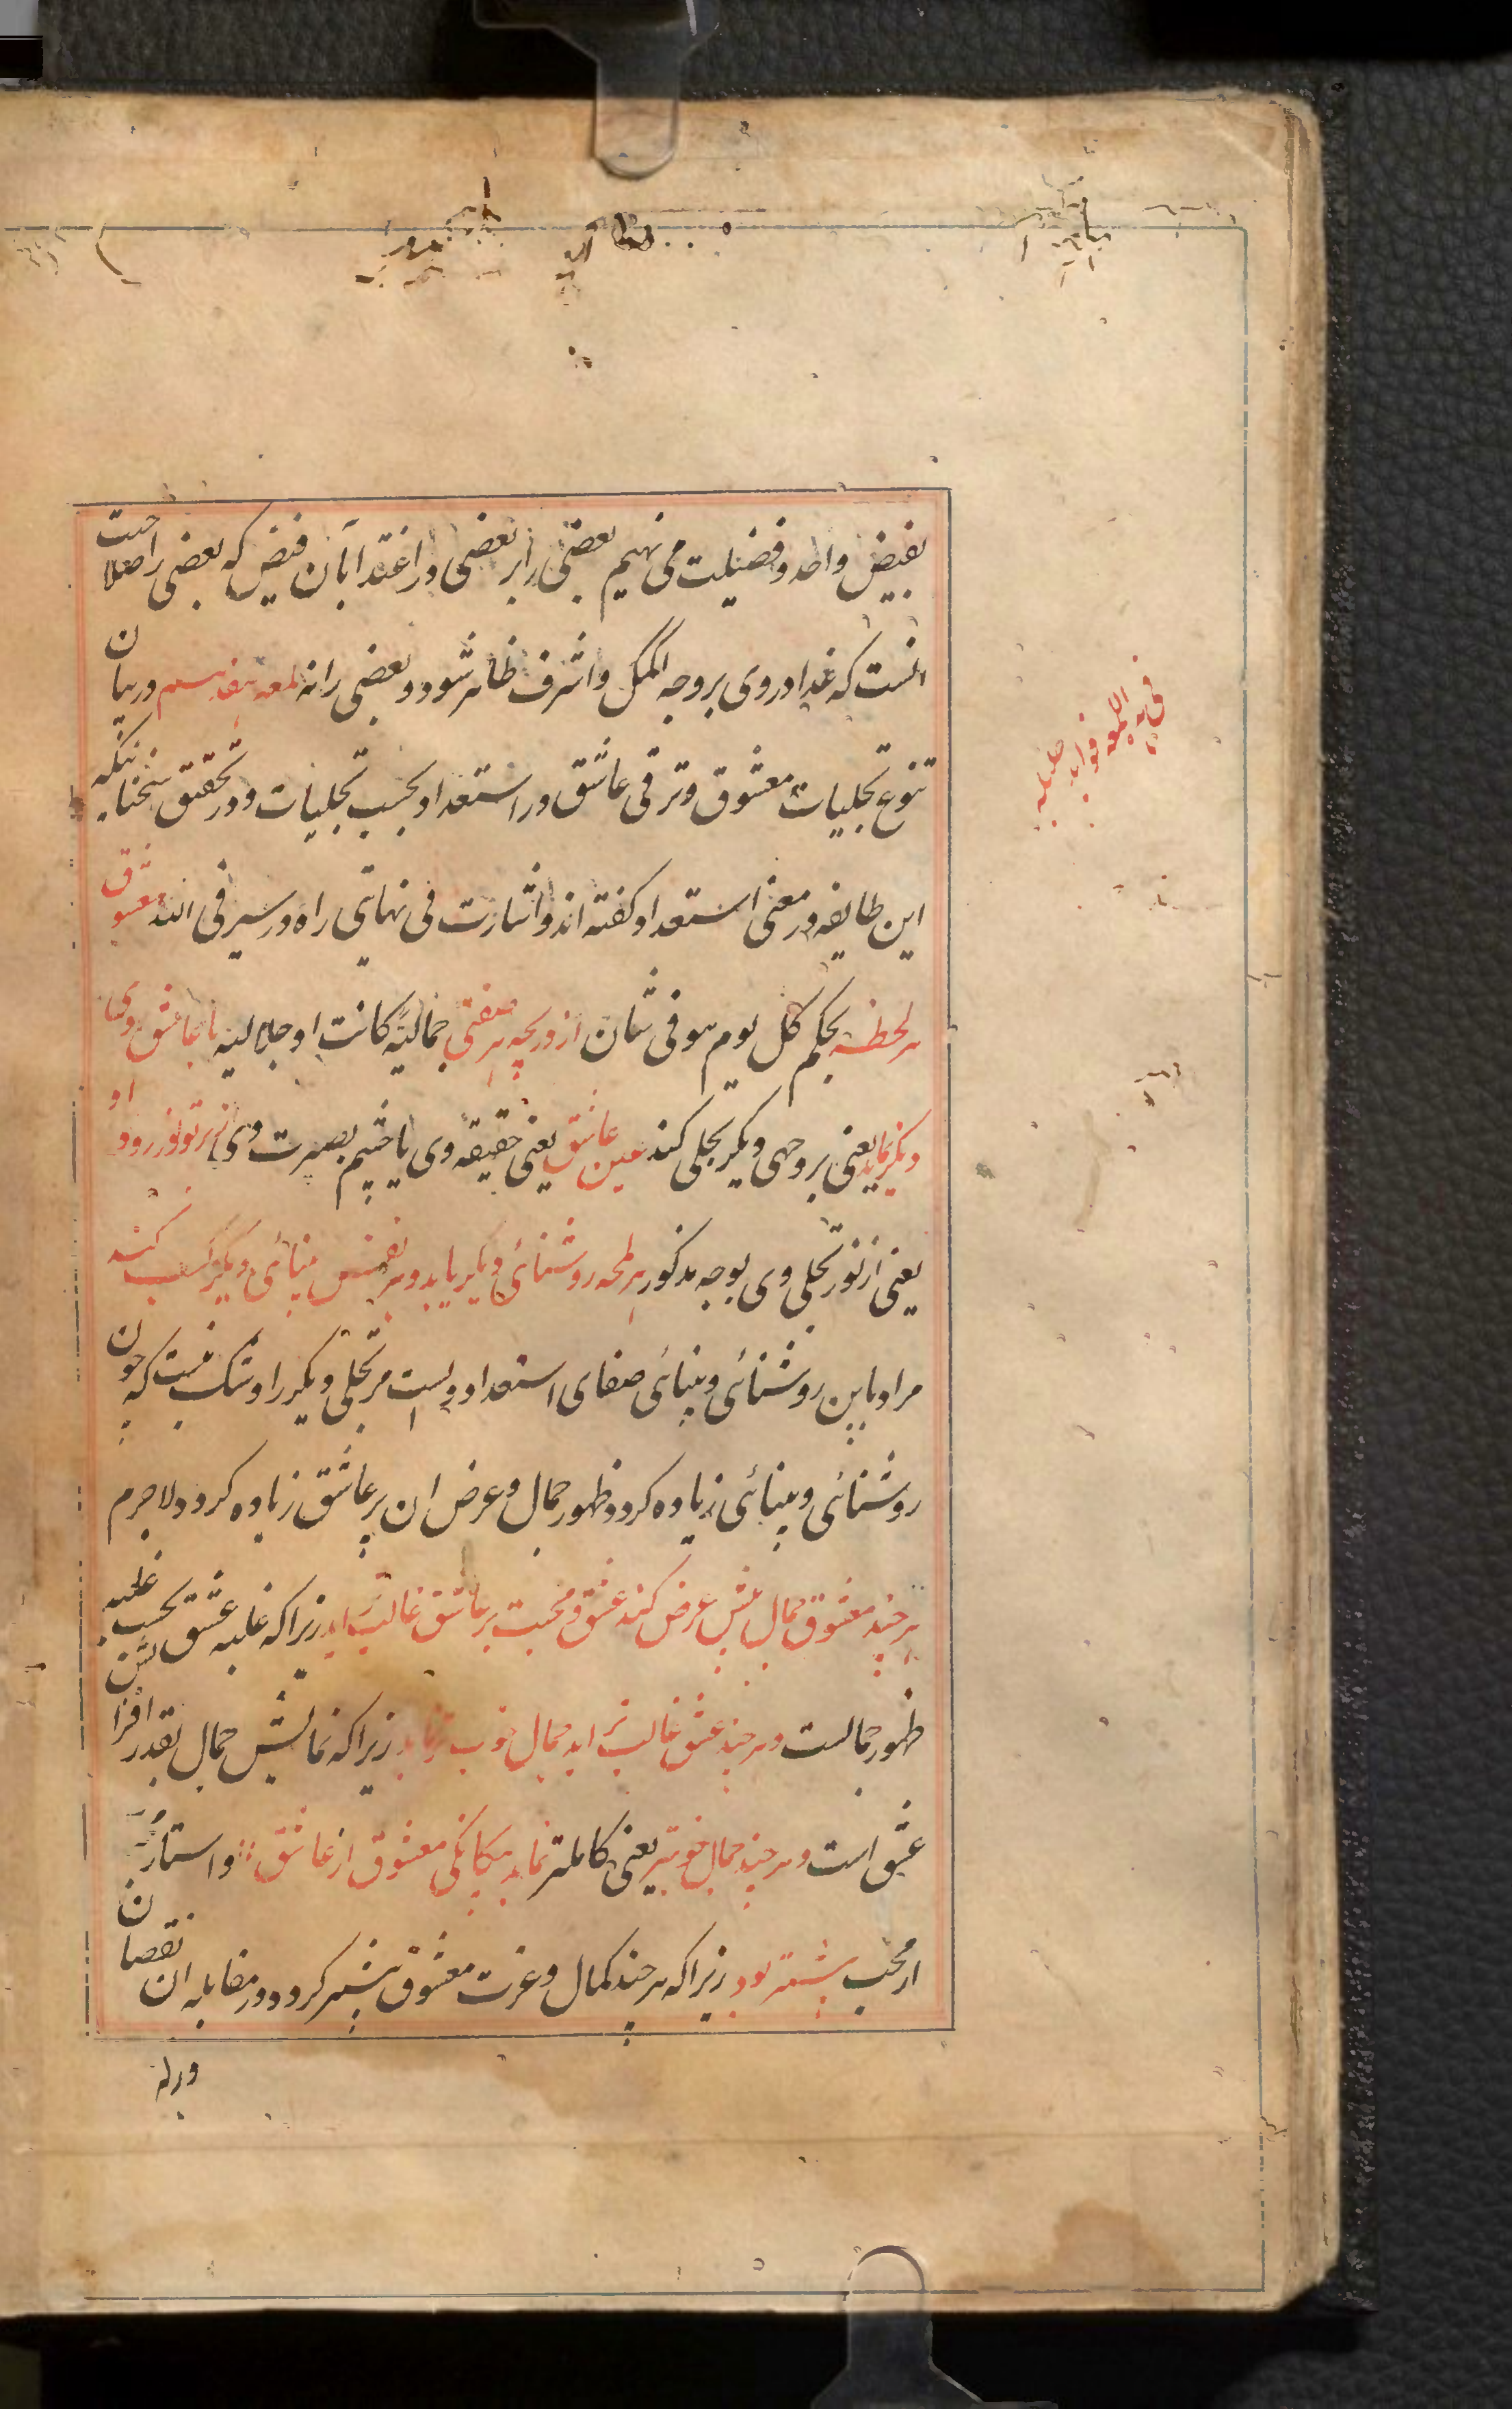 بفیض واحد و فضیلت می نهیم بعضی را بر بعضی در اغتذا بآن فیض که بعضی را صلاحیت
انست که غذا در وی بر وجه اکمل و اشرف ظاهر شود و بعضی را نه لمعه هفدهم در بیان
تنوع تجلیات معشوق و ترقی عاشق در استعداد بحسب تجلیات و در تحقیق سخنانیکه
این طایفه در معنی استعداد کفته اند و اشارت فی نهایتی راه در سیر فی الله معشوق
هر لحظه بحکم کل یوم هو فی شان از دریچه هر صفتی جمالیة کانت او جلالیه با عاشق روی
دیکر نماید یعنی بر وجهی دیکر تجلی کند عین عاشق یعنی حقیقه وی یا چشم بصیرت وی از پرتو نور روی او
یعنی از نور تجلی وی بوجه مذکور هر لمحه روشنائی دیکر یابد و هر نفس بینائی دیکر کسب کند
مراد باین روشنائی و بینائی صفای استعداد ویست مر تجلی دیکر را و شک نیست که چون
روشنائی و بینائی زیاده کردد ظهور جمال و عرض ان بر عاشق زیاده کردد لاجرم
هر چند معشوق جمال بیش عرض کند عشق و محبت بر عاشق غالب تر اید زیرا که غلبه عشق بحسب غلبه
ظهور جمالست و هر چند عشق غالب تر اید جمال خوب تر نماید زیرا که نمایش جمال بقدر افزایش
عشق است و هر چند جمال خوبتر یعنی کاملتر نماید بیکانکی معشوق از عاشق و استتار
از محب بیشتر بود زیرا که هر چند کمال و عزت معشوق بیشتر کردد در مقابله ان نقصان
وذلة
فی هذه اللمعه فواید جلیله